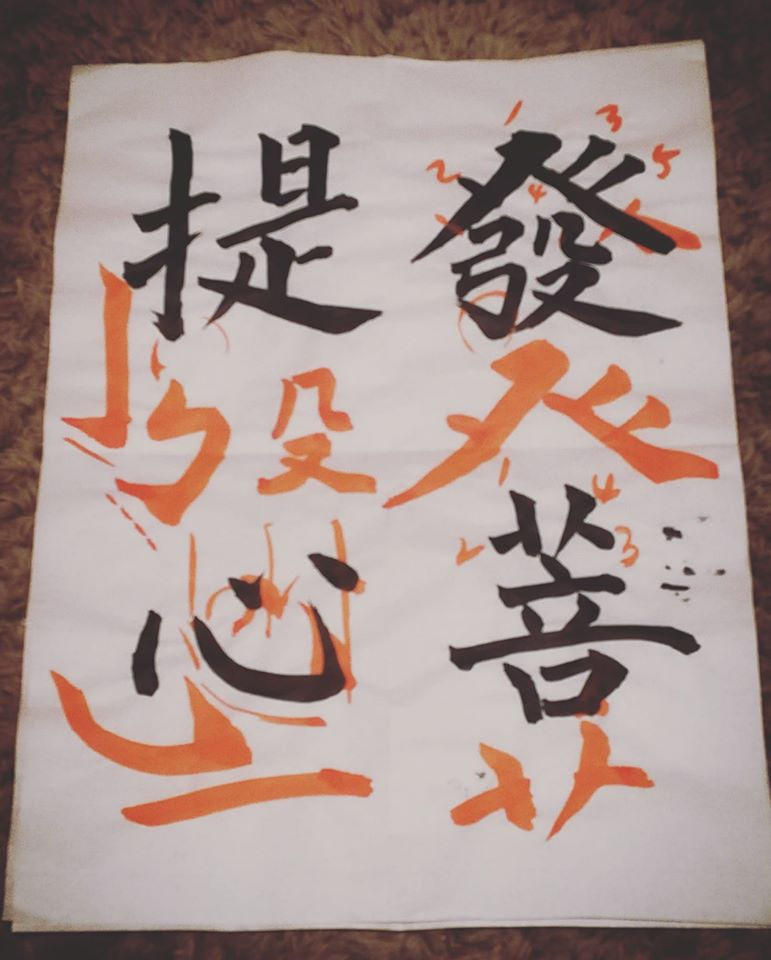 發菩
提心